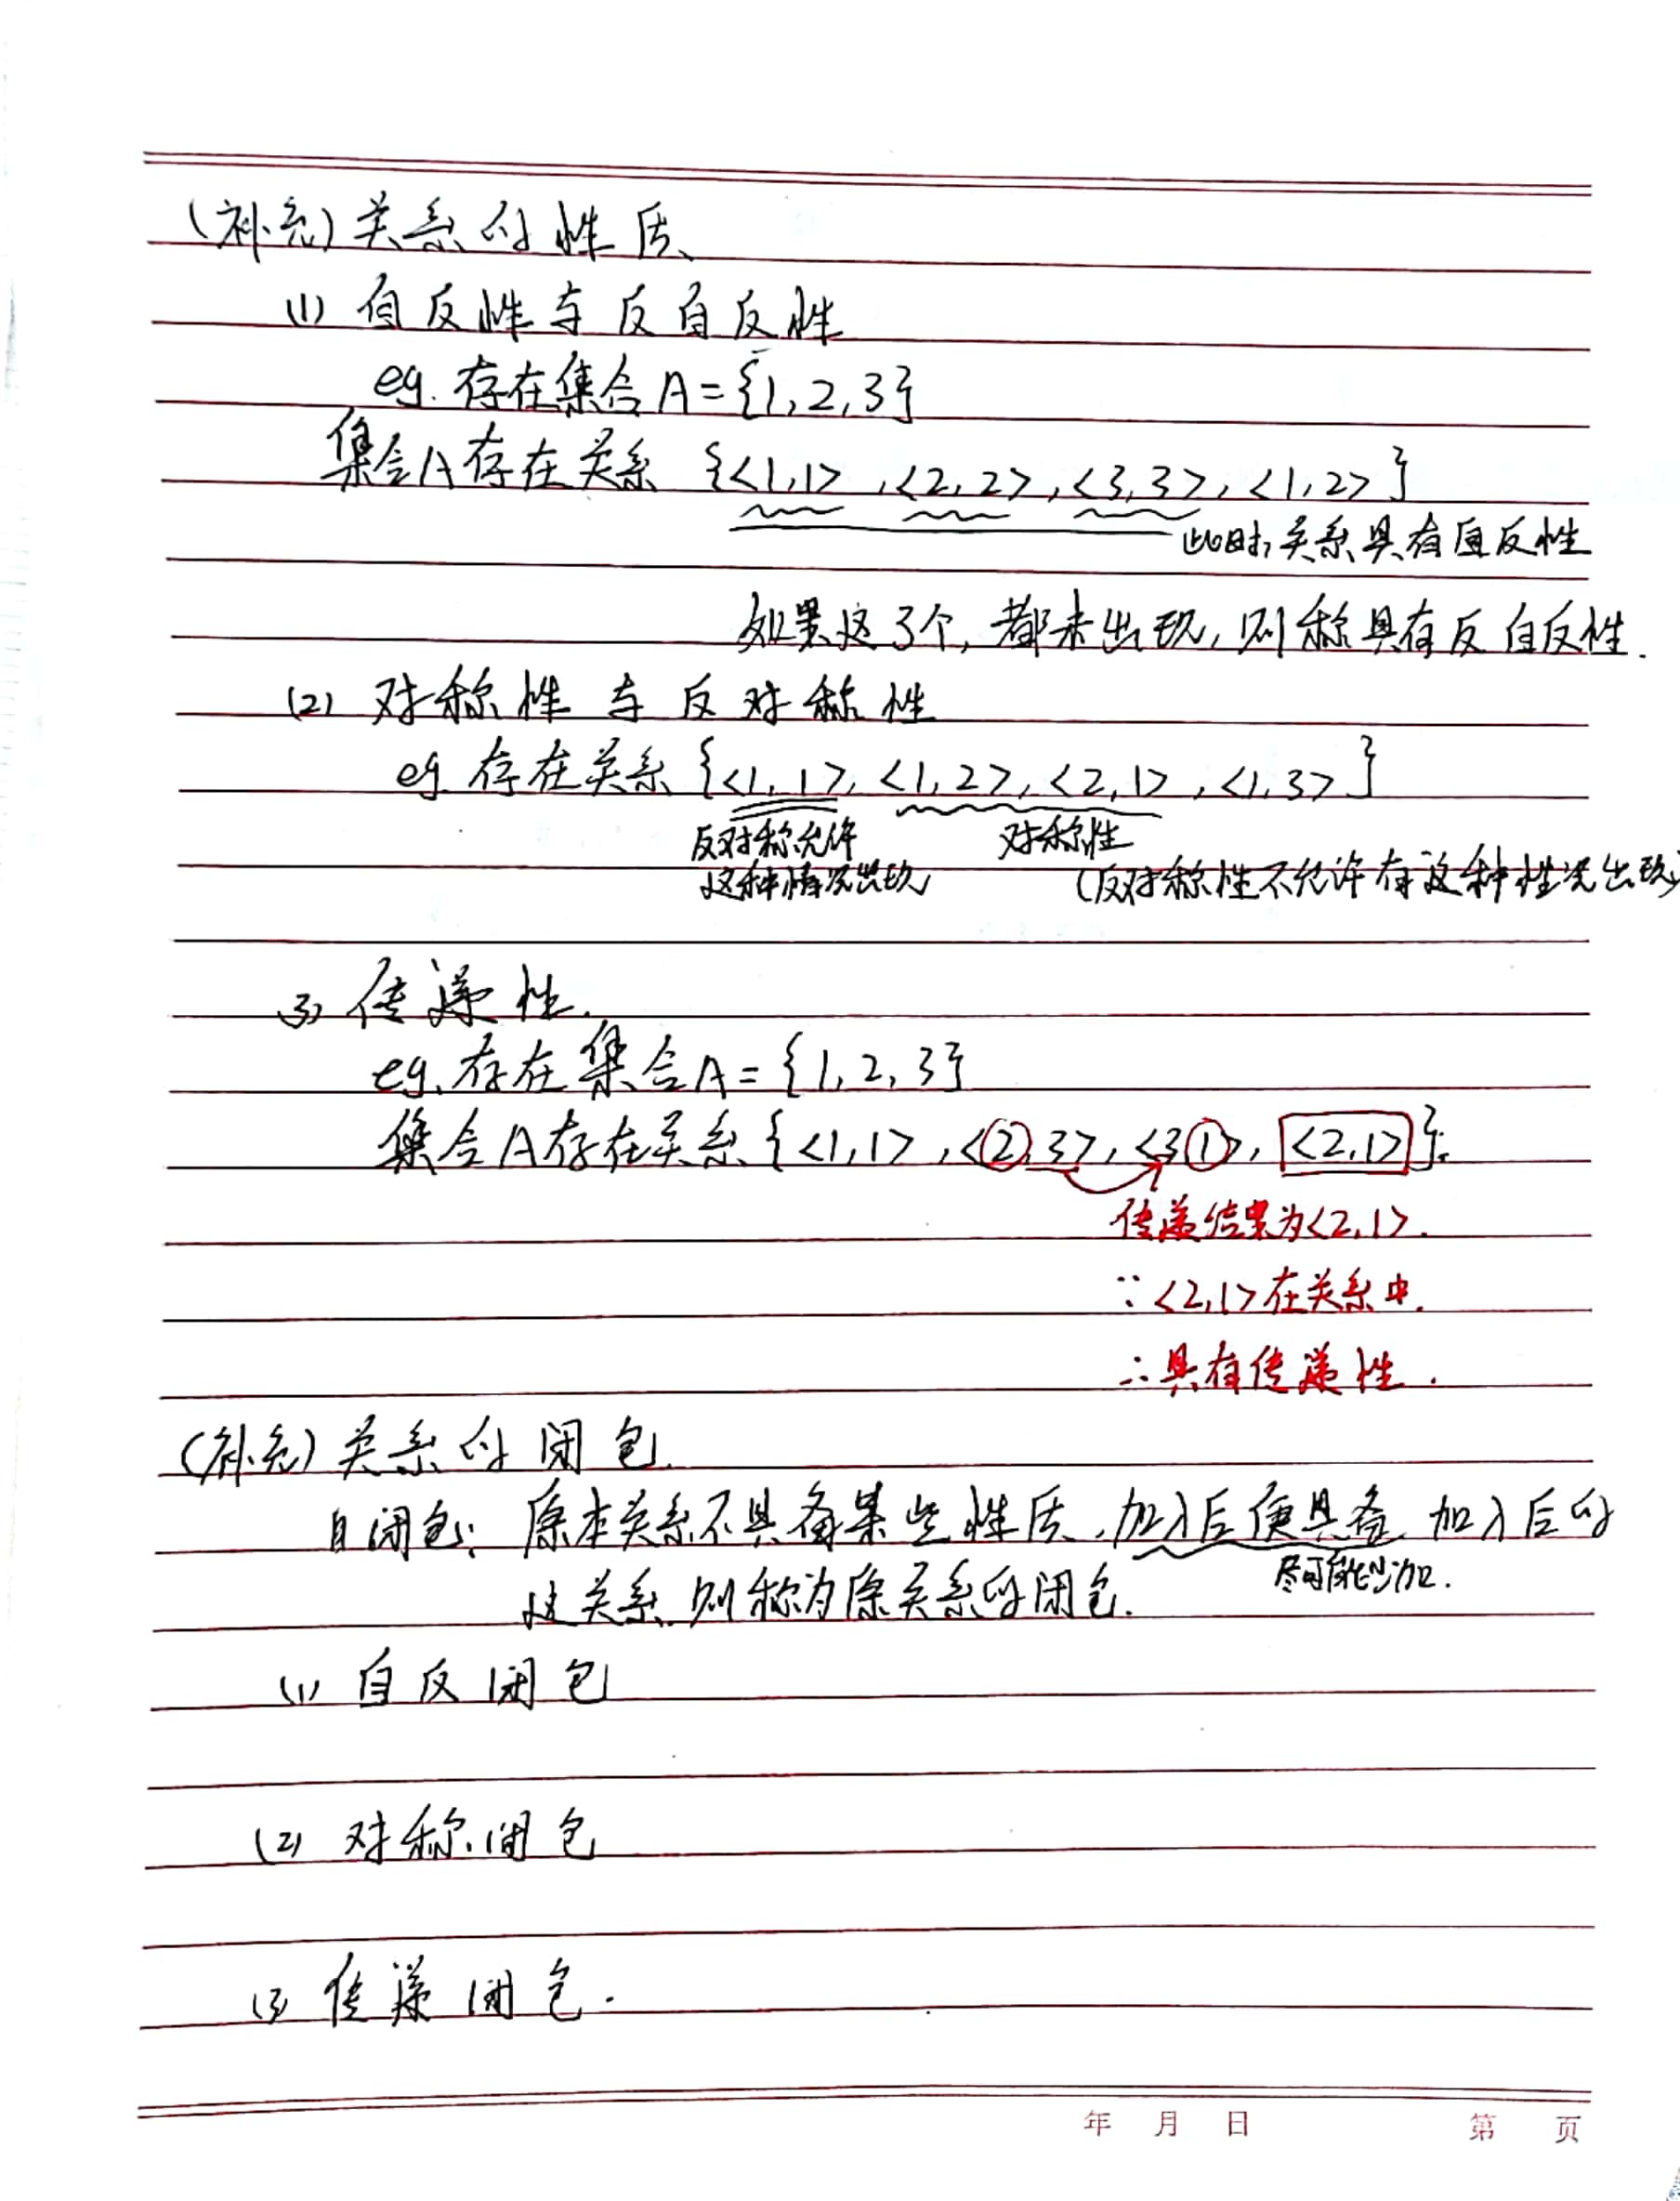 (补充)关系的性质
(1) 自反性与反自反性
eg. 存在集合A={1,2,3}
集合A存在关系 {<1,1>,<2,2>,<3,3>,<1,2>}
此时,关系具有自反性
如果这3个,都未出现,则称具有反自反性.
(2) 对称性与反对称性
eg 存在关系{<1,1>,<1,2>,<2,1>,<1,3>}
反对称允许 对称性
这种情况出现 (反对称性不允许有这种性况出现)
(3) 传递性.
eg.存在集合A={1,2,3}
集合A存在关系{<1,1>,<2,3>,<3,1>,<2,1>}.
传递结果为<2,1>.
∵<2,1>在关系中.
∴具有传递性.
(补充)关系的闭包.
闭包: 原本关系不具备某些性质,加入后便具备,加入后的
尽可能少加.
这关系,则称为原关系的闭包.
(1) 自反闭包
(2) 对称闭包
(3) 传递闭包.
年 月 日 第 页